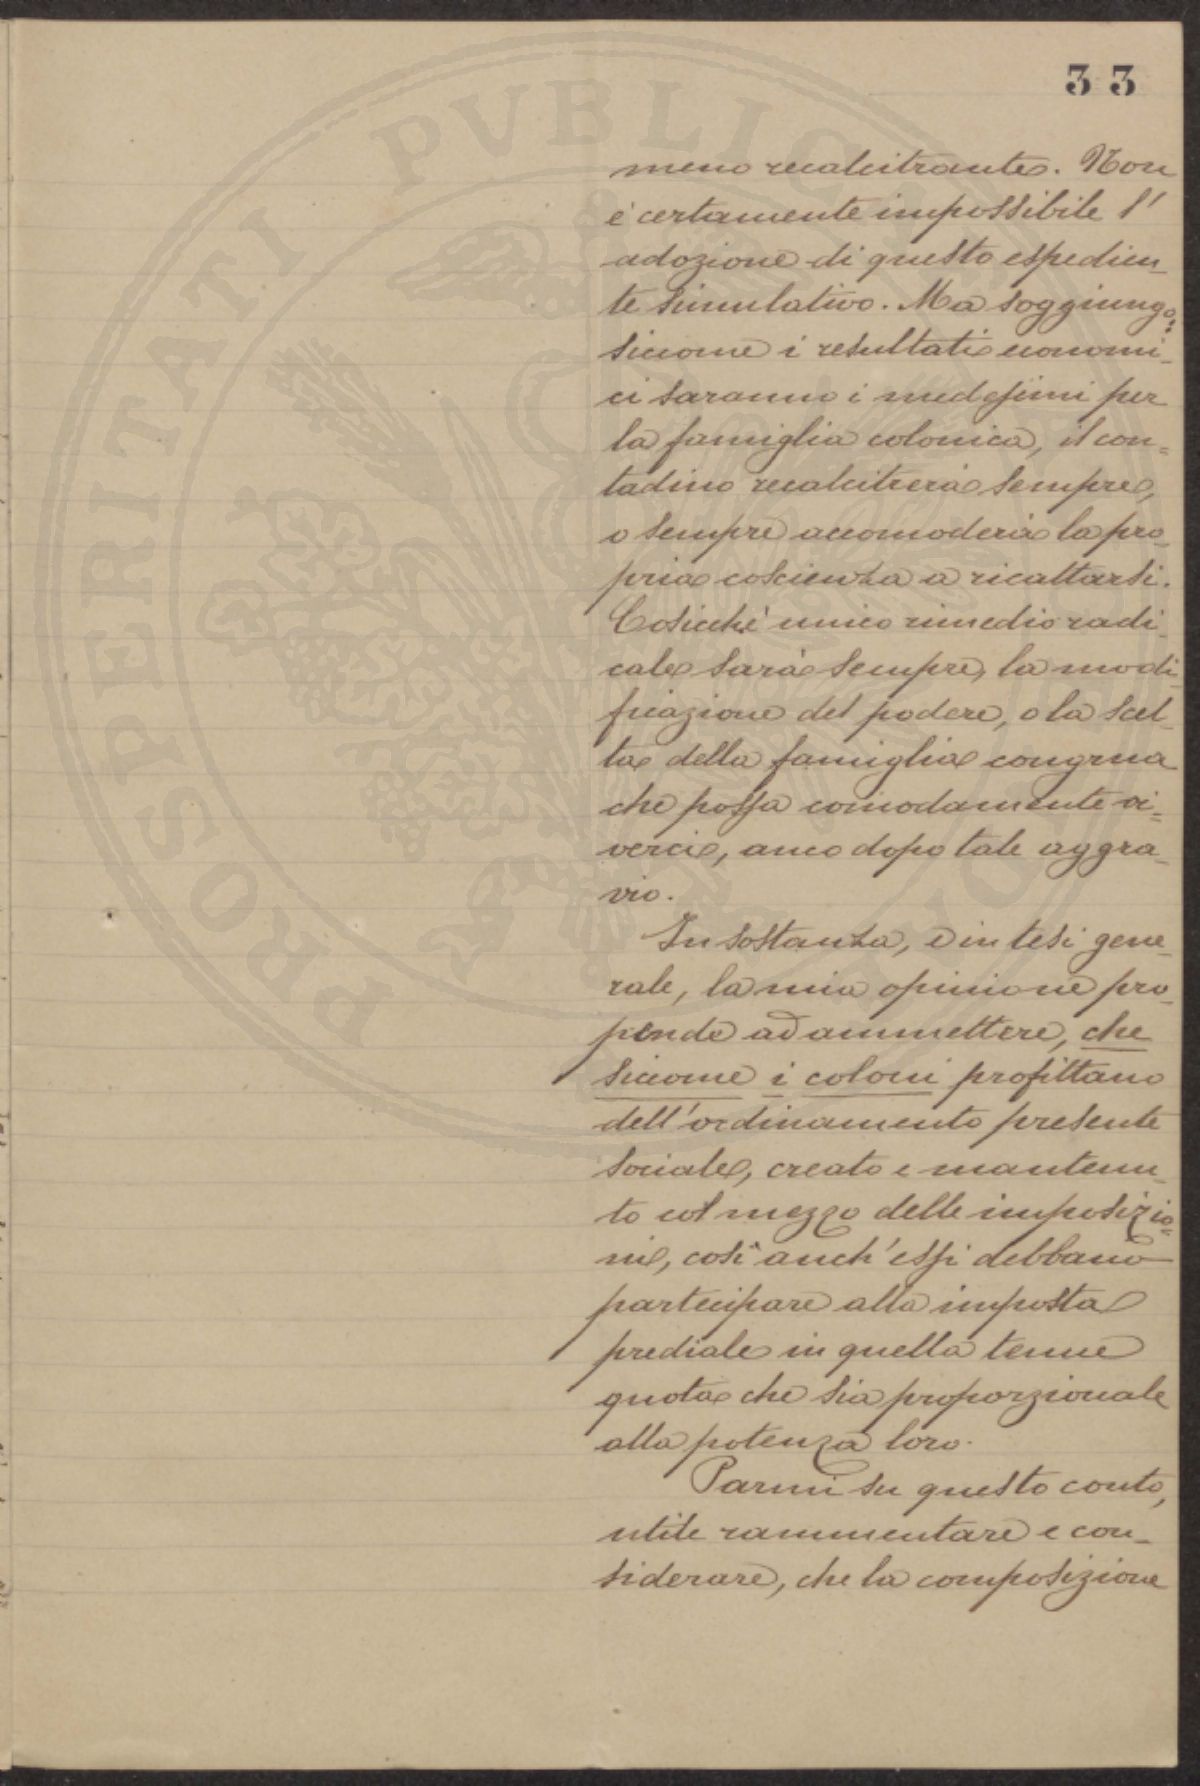 33
PROSPERITATI PUBLIC
meno recalcitrante. Non
è certamente impossibile l'
adozione di questo espedien-
te simulativo. Ma soggiungo:
siccome i resultati economi-
ci saranno i medesimi per
la famiglia colonica, il con-
tadino recalcitrerà sempre,
o sempre accomoderà la pro-
pria coscienza a ricattarsi.
Cosicchè unico rimedio radi-
cale sarà sempre, la modi-
ficazione del podere, o la scel-
ta della famiglia congrua
che possa comodamente vi-
verci, anco dopo tale aggra-
vio.
In sostanza, e in tesi gene-
rale, la mia opinione pro-
pende ad ammettere, che
siccome i coloni profittano
dell'ordinamento presente
sociale, creato e mantenu-
to col mezzo delle imposizio-
ni, così anch'essi debbano
partecipare alla imposta
prediale in quella tenue
quota che sia proporzionale
alla potenza loro.
Parmi su questo conto,
utile rammentare e con-
siderare, che la composizione